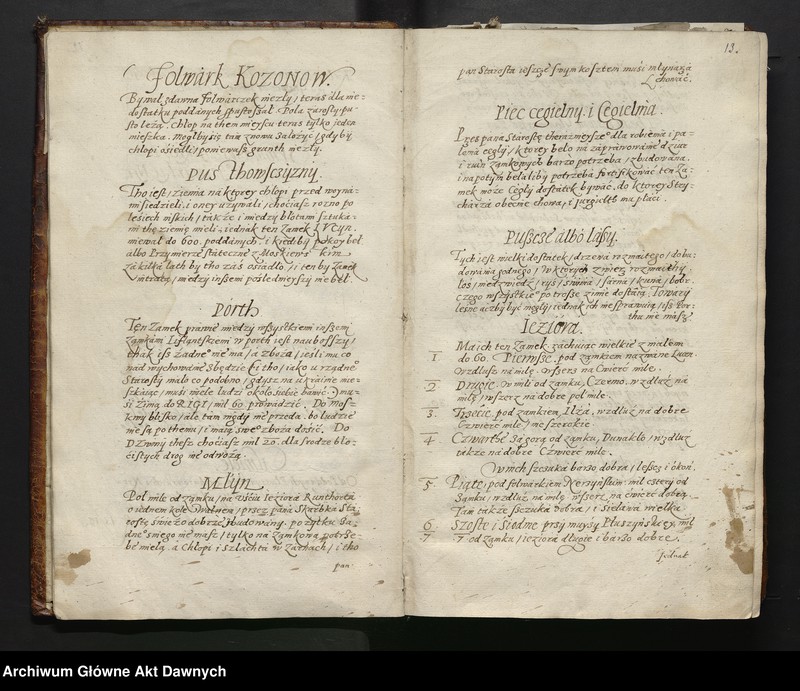 Folwark Kozonow.
Bywał zdawna folwarczek niezły / teras dla nie=
dostatku poddanych spustoszał. Pola zarosły, pu=
sto leżą. Chłop na them mieyscu teras tylko jeden
mieszka. Mogłby się tam znowu założyć / gdyby
chłopi osiedli / poniewasz grunth niezły.
Pus Thomsczyzny.
Tho iest / ziemia na ktorey chłopi przed woyna=
mi siedzieli, i oney uzywali / chociasz rozno po
lesiech / także i miedzy błotami sztuka=
mi thę ziemię mieli, iednak ten Zamek
miewał do 600. poddanych. i kiedyby pokoy beł
albo Przymierze stateczne z Moskiewskim
za kilka lath by tho zas osiadło / i ten by Zamek
/ miedzy inszemi poslednieyszy nie beł.
Porth.
Ten Zamek prawie miedzy wszystkiemi inszemi
Zamkami Iflantskiemi w porth iest nauboszszy /
thak isz żadne° nie ma / a zboża / iesli mu co
nad wychowanie zbędzie / i tho / iako u rządne°
Starosty mało co podobno / gdysz na ukrainie mie=
szkaiąc / musi wiele ludzi około siebie bawić / mu=
si zimą do RIGI / mil 60. prowadzić. Do Mos=
kwy blisko / ale tam nigdy nie przeda. bo ludzie
nie są po themu / i maią swe° zboża dosić. Do
Dzwiny thesz chociasz mil 20. dla srodze bło=
cistych drog nie odwozą.
Młijn.
Pol mile od zamku / na uściu Ieziora
o iednem kole / przez pana Skarbka Sta=
rostę świeżo dobrze zbudowany. pożytku ża=
dne° s niego nie masz / tylko na zamkową potrze=
bę mielą. a chłopi i szlachta w żarnach / i tho
pan
13.
pan Starosta iescze swym kosztem musi młynarza
chować.
Piec cegielny. i Cegielnia.
Przes pana Starostę theraznieysze° dla robienia i pa=
lenia cegły / ktorey beło na zaprawowanie dziur
i ruin zamkowych barzo potrzeba / zbudowana.
i na potym beła liby potrzeba fortifikować ten Za=
mek może Cegły dostatek bywać. do ktorey Stry=
charza obecnie chowa / i jurgielth mu płaci.
Puszcze albo lasy.
Tych iest wielki dostatek / drzewa rozmaitego / do bu=
dowania godnego / w ktorych zwierz rozmaithy /
łoś / niedzwiedz / ryś / świnia / sarna / kuna / bobr.
czego wszystkie° po trosze zimie dostaią. Towary
lesne uczby być mogły / iednak ich nie sprawuią / isz Por=
thu nie masz.
Ieziora.
Ma ich ten Zamek zachuiąc wielkie z małemi
1. do 60. Pierwsze. pod zamkiem nazwane Luon.
Wzdłusz na milę. Wszersz na cwierć mile.
2. Drugie. W mili od zamku, Czermo. wzdłuż na
milę / wszerz na dobre poł mile.
3. Trzecie. pod zamkiem, Ilza. wzdłuż na dobre
Czwierć mile / nie szerokie.
4. Czwarte za gorą od zamku, Dunakło / wzdłuż
także na dobre Czwierć mile.
W nich szczuka barzo dobra / lescz i okoń.
5. Piąte. pod folwarkiem Nerzynsum. mil cztery od
Zamku / wzdłuż, na milę. wszerz na cwierć dobrą.
Tam także szczuka dobra / i sielawa wielka
6. Szoste / i Siodme przy muyzy Płuszynskiey, mil
7. 7 od zamku / ieziora długie i barzo dobre.
Jednak
Archiwum Główne Akt Dawnych